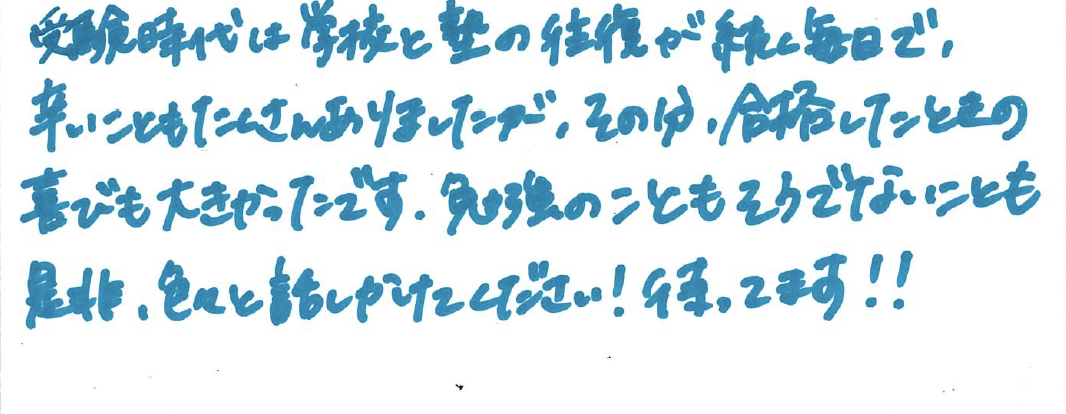 受験時代は学校と塾の往復が続く毎日で、
辛いこともたくさんありましたが、その分、合格したときの
喜びも大きかったです。勉強のこともそうでないことも
是非、色々と話しかけてください！待ってます！！